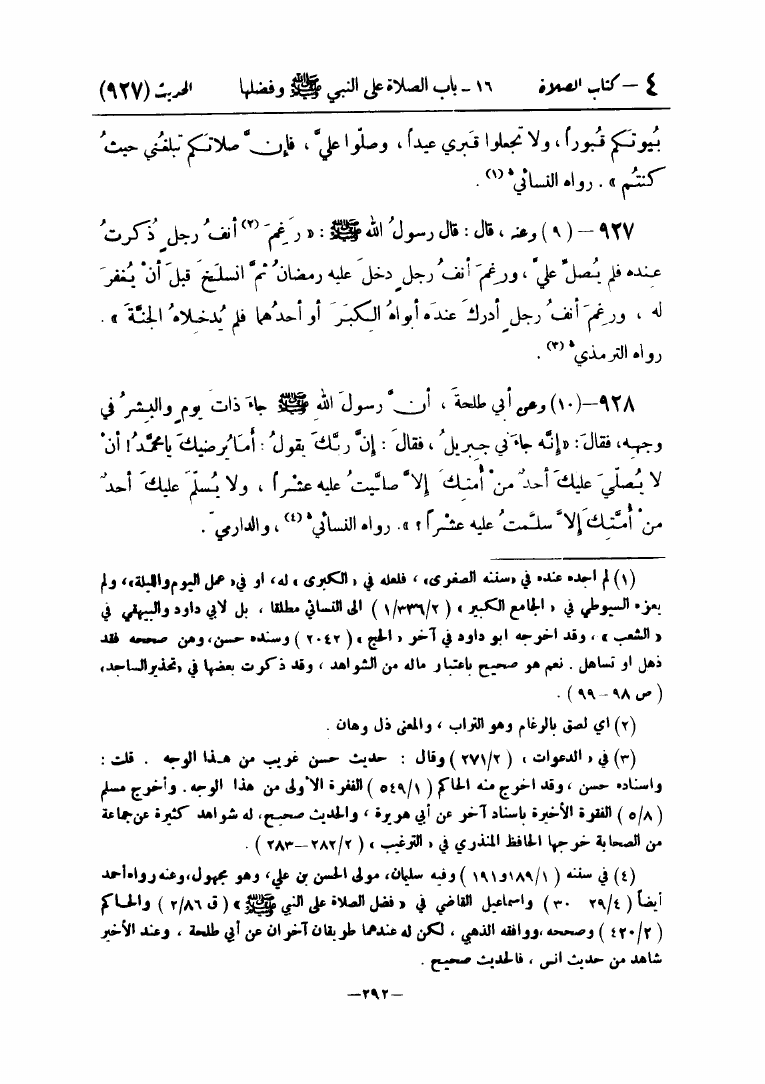 ٤ – كتاب الصلاة ١٦ - باب الصلاة على النبي ﷺ وفضلها الحديث (٩٢٧)
بُيوتكم قُبوراً، ولا تجعلوا قَبري عيداً، وصلّوا عليَّ، فإنَّ صلاتَكم تبلغُني حيثُ
كنتُم». رواه النسائيُّ (١).
٩٢٧ – (٩) وعنه، قال: قال رسولُ الله ﷺ: «رَغِمَ (٢) أنفُ رجلٍ ذُكرتُ
عنده فلم يُصلِّ عليَّ، ورغِمَ أنفُ رجلٍ دخلَ عليه رمضانُ ثمَّ انسلَخَ قبلَ أنْ يُغفرَ
له، ورغِمَ أنفُ رجلٍ أدركَ عندَه أبواهُ الكِبَرَ أو أحدُهما فلم يُدخلاهُ الجنَّةَ».
رواه الترمذيُّ (٣).
٩٢٨–(١٠) وعن أبي طلحةَ، أنَّ رسولَ اللهِ ﷺ جاءَ ذاتَ يومٍ والبِشرُ في
وجهِه، فقالَ: «إنَّه جاءَني جبريلُ، فقالَ: إنَّ ربَّكَ يقولُ: أمَا يُرضيكَ يا محمَّدُ! أنْ
لا يُصلّيَ عليكَ أحدٌ منْ أُمتِكَ إلاَّ صلَّيتُ عليه عشْراً، ولا يُسلّمَ عليكَ أحدٌ
منْ أُمَّتِكَ إلاَّ سلَّمتُ عليه عشْراً؟». رواه النسائيُّ (٤)، والدارميّ.
(١) لم اجده عنده في «سننه الصغرى»، فلعله في «الكبرى» له، او في «عمل اليوم والليلة»، ولم
يعزه السيوطي في «الجامع الكبير» (١/٣٣٦/٢) الى النسائي مطلقا، بل لابي داود والبيهقي في
«الشعب»، وقد اخرجه ابو داود في آخر «الحج» (٢٠٤٢) وسنده حسن، ومن صححه فقد
ذهل او تساهل. نعم هو صحيح باعتبار ماله من الشواهد، وقد ذكرت بعضها في «تحذير الساجد»
(ص ٩٨ – ٩٩).
(٢) اي لصق بالرغام وهو التراب، والمعنى ذل وهان.
(٣) في «الدعوات» (٢٧١/٢) وقال: حديث حسن غريب من هذا الوجه. قلت:
واسناده حسن، وقد اخرج منه الحاكم (٥٤٩/١) الفقرة الأولى من هذا الوجه. وأخرج مسلم
(٥/٨) الفقرة الأخيرة باسناد آخر عن أبي هريرة، والحديث صحيح، له شواهد كثيرة عن جماعة
من الصحابة خرجها الحافظ المنذري في «الترغيب» (٢٨٢/٢–٢٨٣).
(٤) في سننه (١/ ١٨٩ و ١٩١) وفيه سليمان، مولى الحسن بن علي، وهو مجهول، وعنه رواه أحمد
أيضاً (٢٩/٤ ٣٠) واسماعيل القاضي في «فضل الصلاة على النبي ﷺ» (ق ٢/٨٦) والحاكم
(٤٢٠/٢) وصححه، ووافقه الذهبي، لكن له عندهما طريقان آخران عن أبي طلحة، وعند الأخير
شاهد من حديث انس، فالحديث صحيح.
–٢٩٢–